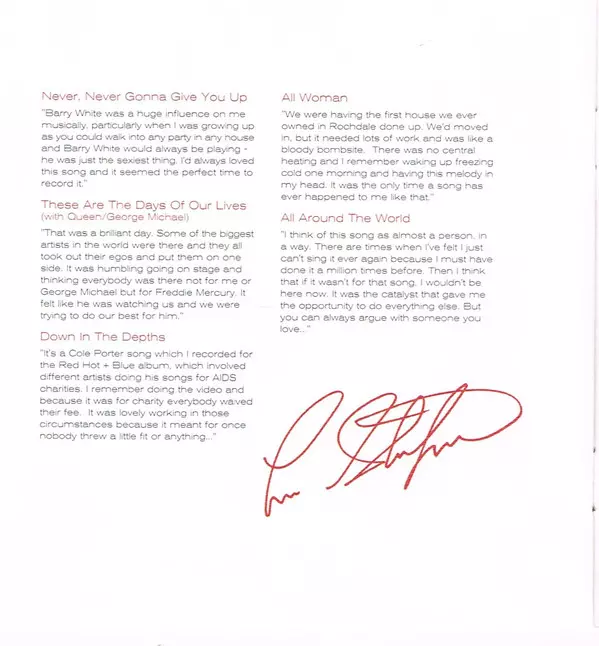 Never, Never Gonna Give You Up
"Barry White was a huge influence on me
musically, particularly when I was growing up
as you could walk into any party in any house
and Barry White would always be playing -
he was just the sexiest thing. I'd always loved
this song and it seemed the perfect time to
record it."
These Are The Days Of Our Lives
(with Queen/George Michael)
"That was a brilliant day. Some of the biggest
artists in the world were there and they all
took out their egos and put them on one
side. It was humbling going on stage and
thinking everybody was there not for me or
George Michael but for Freddie Mercury. It
felt like he was watching us and we were
trying to do our best for him."
Down In The Depths
"It's a Cole Porter song which I recorded for
the Red Hot + Blue album, which involved
different artists doing his songs for AIDS
charities. I remember doing the video and
because it was for charity everybody waved
their fee. It was lovely working in those
circumstances because it meant for once
nobody threw a little fit or anything..."
All Woman
"We were having the first house we ever
owned in Rochdale done up. We'd moved
in, but it needed lots of work and was like a
bloody bombsite. There was no central
heating and I remember waking up freezing
cold one morning and having this melody in
my head. It was the only time a song has
ever happened to me like that."
All Around The World
"I think of this song as almost a person, in
a way. There are times when I've felt I just
can't sing it ever again because I must have
done it a million times before. Then I think
that if it wasn't for that song, I wouldn't be
here now. It was the catalyst that gave me
the opportunity to do everything else. But
you can always argue with someone you
love..."